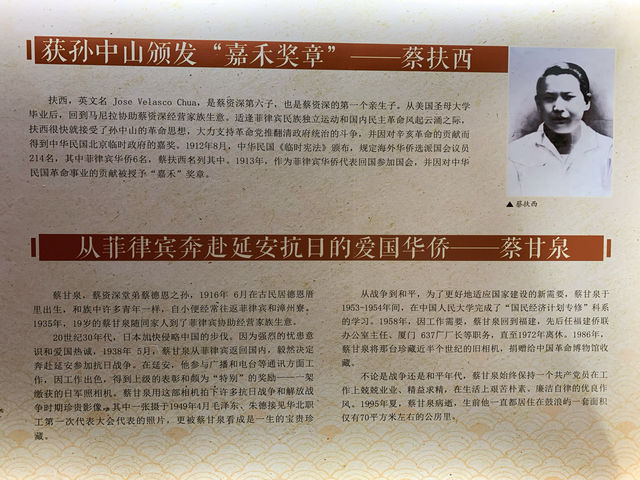 获孙中山颁发“嘉禾奖章”——蔡扶西
扶西，英文名 Jose Velasco Chua，是蔡资深第六子，也是蔡资深的第一个亲生子。从美国圣母大学
毕业后，回到马尼拉协助蔡资深经营家族生意。适逢菲律宾民族独立运动和国内民主革命风起云涌之际，
扶西很快就接受了孙中山的革命思想，大力支持革命党推翻清政府统治的斗争，并因对辛亥革命的贡献而
得到中华民国北京临时政府的嘉奖。1912年8月，中华民国《临时宪法》颁布，规定海外华侨选派国会议员
214名，其中菲律宾华侨6名，蔡扶西名列其中。1913年，作为菲律宾华侨代表回国参加国会，并因对中华
民国革命事业的贡献被授予“嘉禾”奖章。
▲蔡扶西
从菲律宾奔赴延安抗日的爱国华侨——蔡甘泉
蔡甘泉，蔡资深堂弟蔡德恩之孙，1916年 6月在古民居德恩厝
里出生，和族中许多青年一样，自小便经常往返菲律宾和漳州寮。
1935年，19岁的蔡甘泉随同家人到了菲律宾协助经营家族生意。
20世纪30年代，日本加快侵略中国的步伐。因为强烈的忧患意
识和爱国热诚，1938年 5月，蔡甘泉从菲律宾返回国内，毅然决定
奔赴延安参加抗日战争。在延安，他参与广播和电台等通讯方面工
作，因工作出色，得到上级的表彰和颇为“特别”的奖励——一架
缴获的日军照相机。蔡甘泉用这部相机拍下许多抗日战争和解放战
争时期珍贵影像。其中一张摄于1949年4月毛泽东、朱德接见华北职
工第一次代表大会代表的照片，更被蔡甘泉看成是一生的宝贵珍
藏。
从战争到和平，为了更好地适应国家建设的新需要，蔡甘泉于
1953-1954年间，在中国人民大学完成了“国民经济计划专修”科系
的学习。1958年，因工作需要，蔡甘泉回到福建，先后任福建侨联
办公室主任、厦门 637厂厂长等职务，直至1972年离休。1986年，
蔡甘泉将那台珍藏近半个世纪的旧相机，捐赠给中国革命博物馆收
藏。
不论是战争还是和平年代，蔡甘泉始终保持一个共产党员在工
作上兢兢业业、精益求精，在生活上艰苦朴素、廉洁自律的优良作
风。1995年夏，蔡甘泉病逝，生前他一直都居住在鼓浪屿一套面积
仅有70平方米左右的公房里。